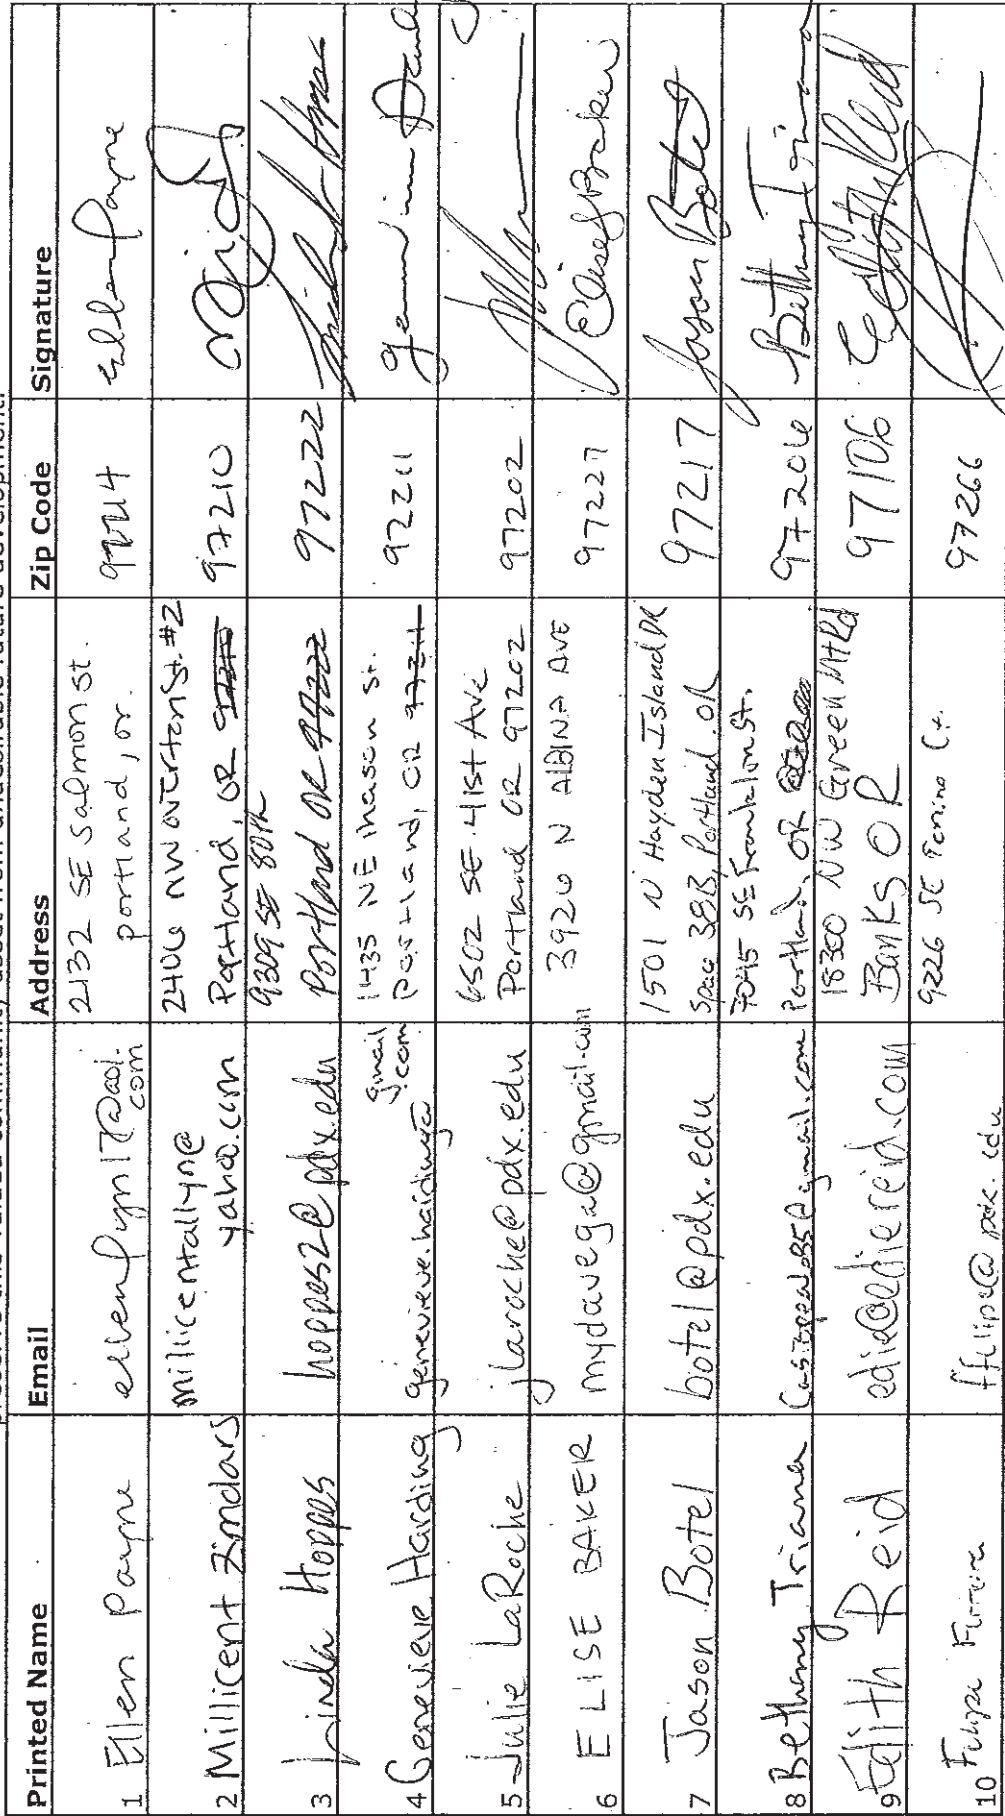 preserve this valued community asset from undesirable future development.
Printed Name Email Address Zip Code Signature
1 Ellen Payne ellenpyn17@aol.com 2132 SE Salmon st. portland, or. 97214 Ellen Payne
2 Millicent Zimdars millicentallyn@yahoo.com 2406 NW Overton St. #2 Portland, OR 97210 97210
3 Linda Hoppes hoppes2@pdx.edu 9309 SE 80th Portland OR 97222 97222
4 Genevieve Harding genevieve.harding@gmail.com 1435 NE mason st. portland, OR 97211 97211 Genevieve
5 Julie LaRoche jlaroche@pdx.edu 6502 SE 41st Ave Portland OR 97202 97202
6 ELISE BAKER mydavega@gmail.com 3920 N ALBINA AVE 97227 Elise Baker
7 Jason Botel botel@pdx.edu 1501 N Hayden Island DR Space 38B, Portland. OR 97217 Jason Botel
8 Bethany Triana @gmail.com 7045 SE Franklin St. Portland, OR 97206 Bethany Triana
9 Edith Reid edie@ediereid.com 18300 NW Green Mt Rd Banks OR 97106 Edith Reid
10 Filipe ffilipe@pdx.edu 9226 SE Ct. 97266